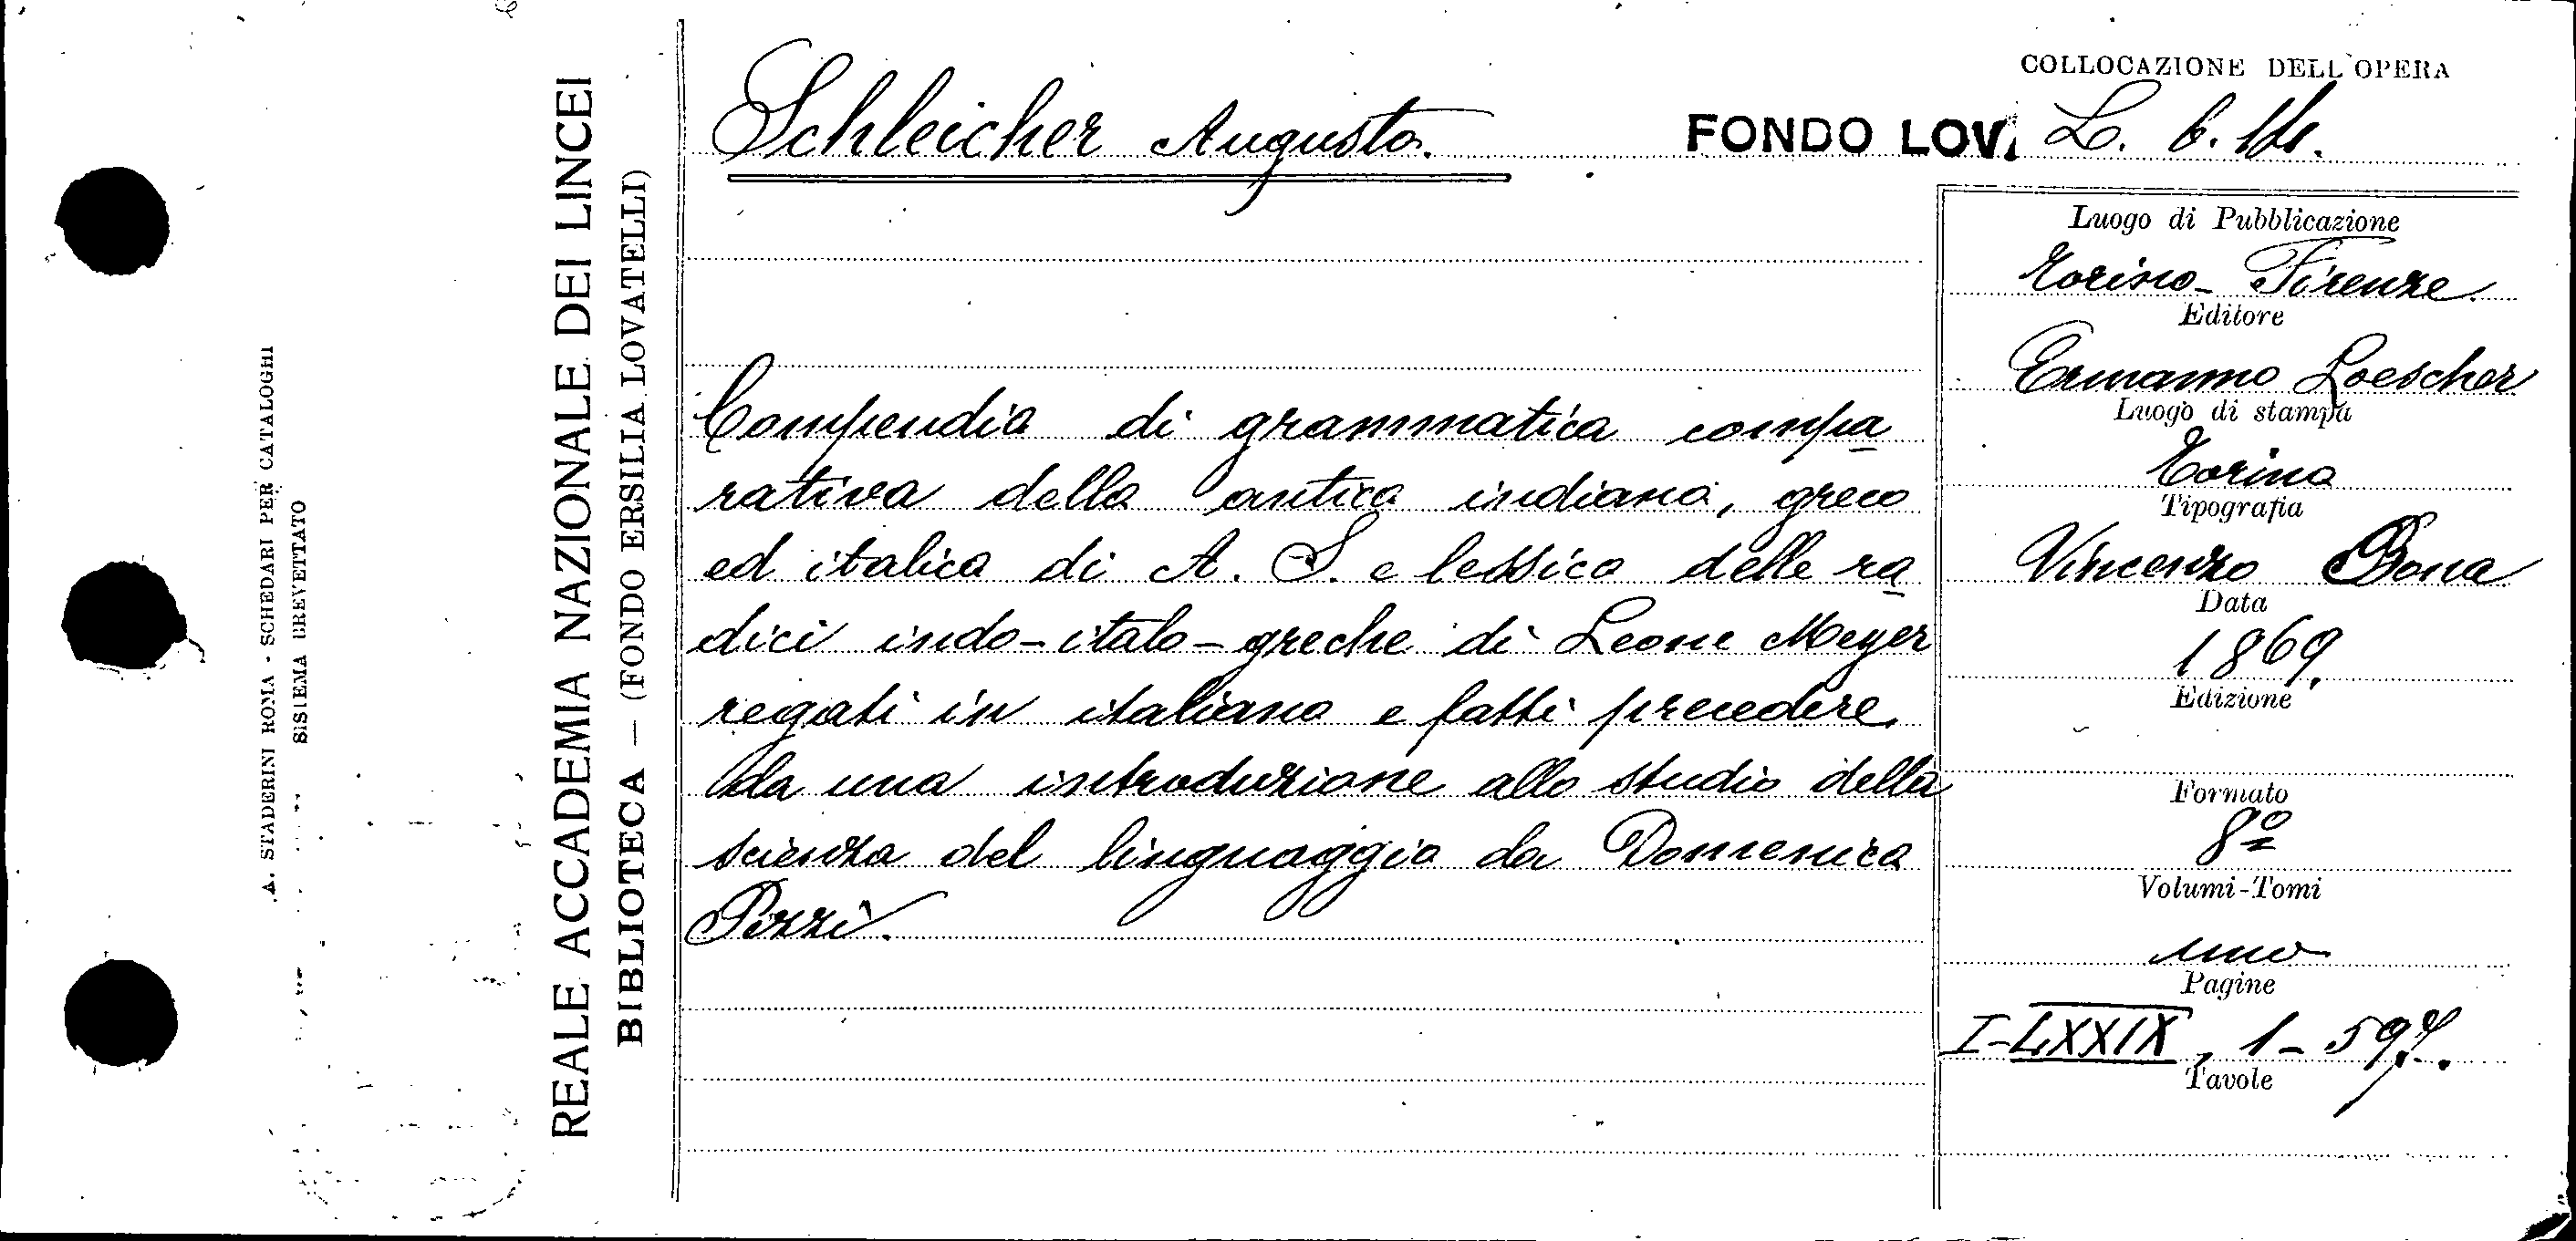 COLLOCAZIONE DELL'OPERA
Schleicher Augusto.
FONDO LOV. L. 6.
Luogo di Pubblicazione
Torino - Firenze
Editore
Ermanno Loescher
Luogo di stampa
Torino
Tipografia
Vincenzo Bona
Data
1869.
Edizione
Formato
8º
Volumi-Tomi
uno
Pagine
I-LXXIX, 1-597.
Tavole
Compendio di grammatica compa
rativa dello antico indiano, greco
ed italico di A. S. e lessico delle ra
dici indo-italo-greche di Leone Meyer
regati in italiano e fatti precedere
da una introduzione allo studio della
scienza del linguaggio da Domenico
Pezzi.
REALE ACCADEMIA NAZIONALE DEI LINCEI
BIBLIOTECA — (FONDO ERSILIA LOVATELLI)
A. STADERINI ROMA - SCHEDARI PER CATALOGHI
SISTEMA BREVETTATO